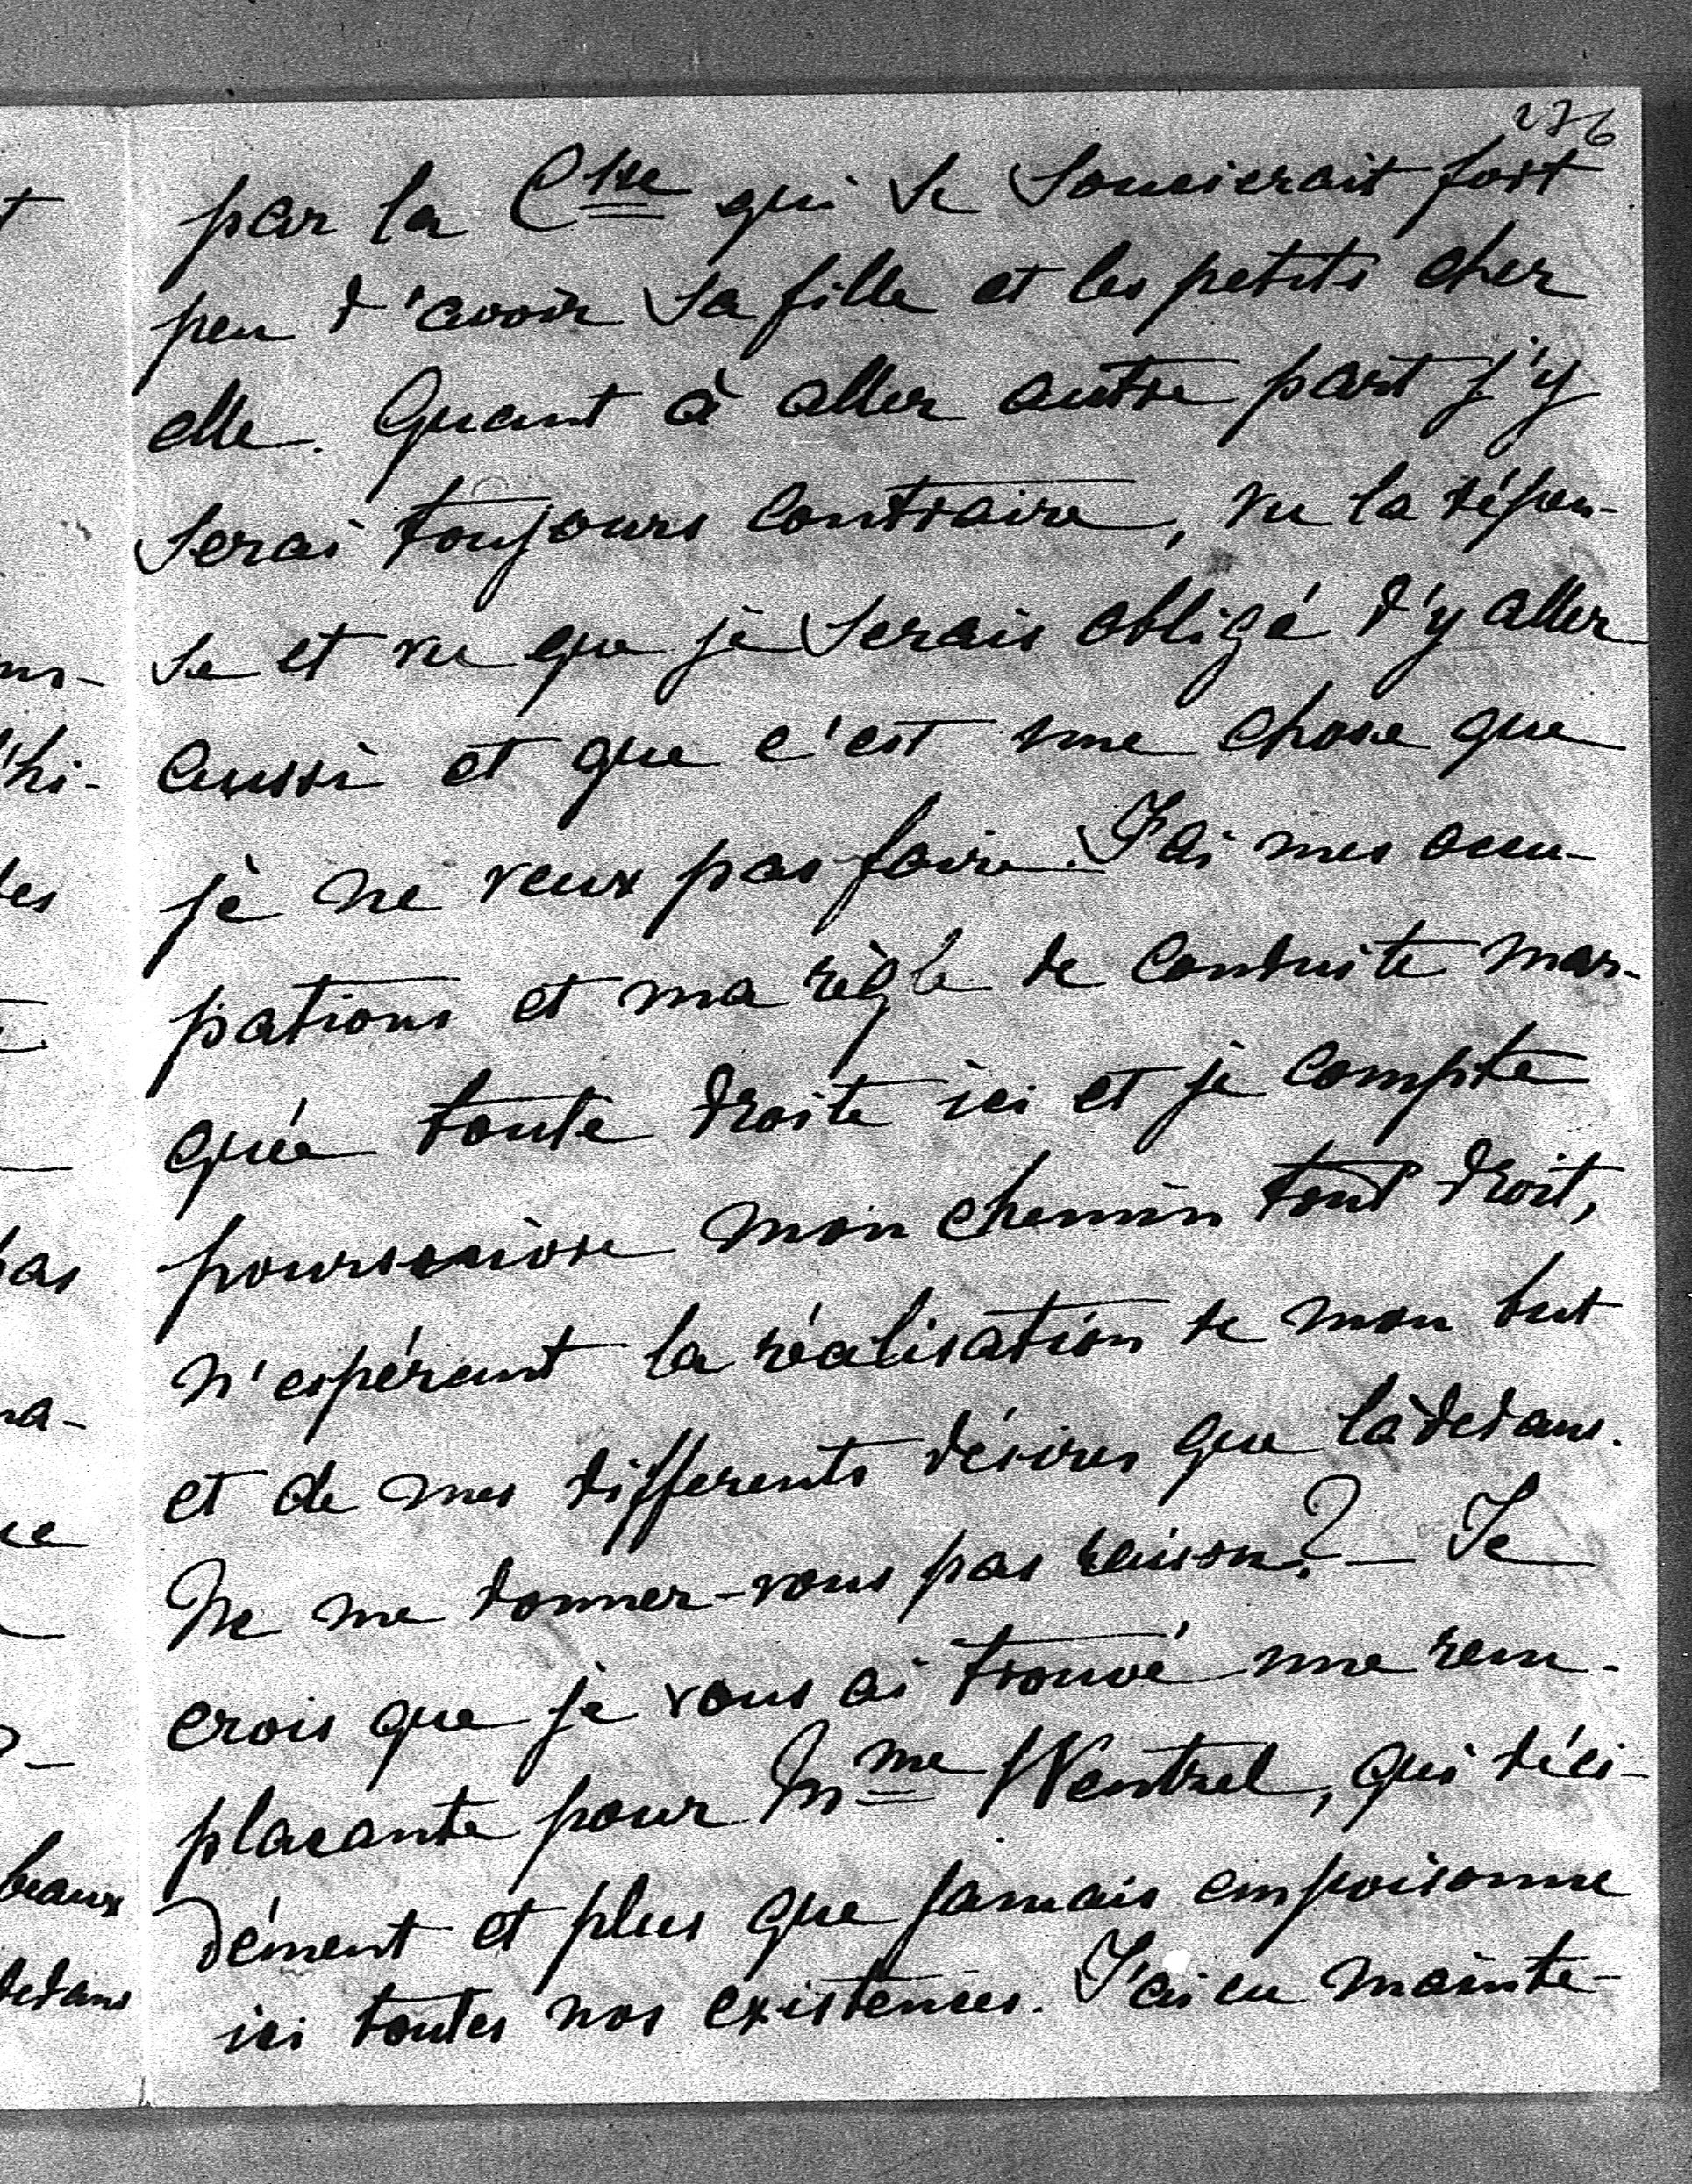 276
par la C<sup>sse</sup> qui se soucierait fort
peu d'avoir sa fille et les petits cher
elle. Quant à aller autre part j'y
serai toujours contraire, vu la dépen-
se et vu que je serais obligé d'y aller
aussi et que c'est une chose que
je ne veux pas faire. J'ai mes occu-
pations et ma règle de conduite mar-
quée toute droite ici et je compte
poursuivre mon chemin tout droit,
n'espérant la réalisation de mon but
et de mes differents désires que là dedans.
Ne me donner-vous pas raison? — Je
crois que je vous ai trouvé une rem-
placante pour M<sup>me</sup> Wentzel, qui déci-
dément et plus que jamais empoisonne
ici toutes nos existences. J'ai eu mainte-
t
ns-
'hi-
des
pas
na-
ce
beaux
dedans